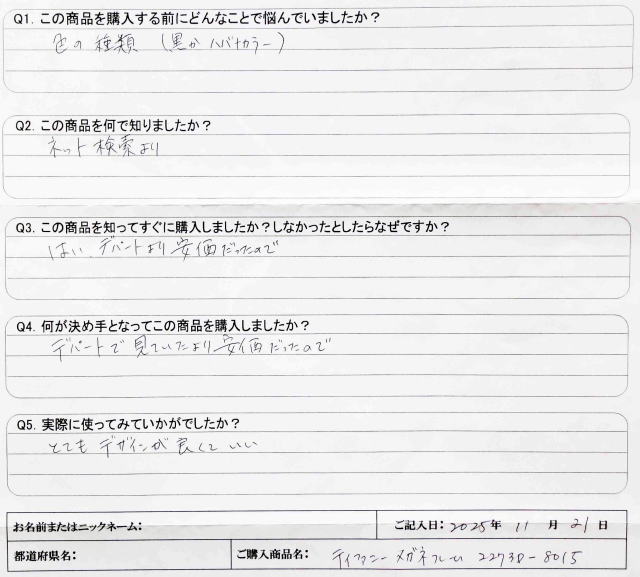 Q1. この商品を購入する前にどんなことで悩んでいましたか？
色の種類 （黒か ハバナカラー）
Q2. この商品を何で知りましたか？
ネット検索より
Q3. この商品を知ってすぐに購入しましたか？しなかったとしたらなぜですか？
はい、デパートより安価だったので
Q4. 何が決め手となってこの商品を購入しましたか？
デパートで見ていたより安価だったので
Q5. 実際に使ってみていかがでしたか？
とてもデザインが良くていい
お名前またはニックネーム： ご記入日：2025年 11 月 21 日
都道府県名： ご購入商品名： ティファニー メガネフレーム 2273D-8015